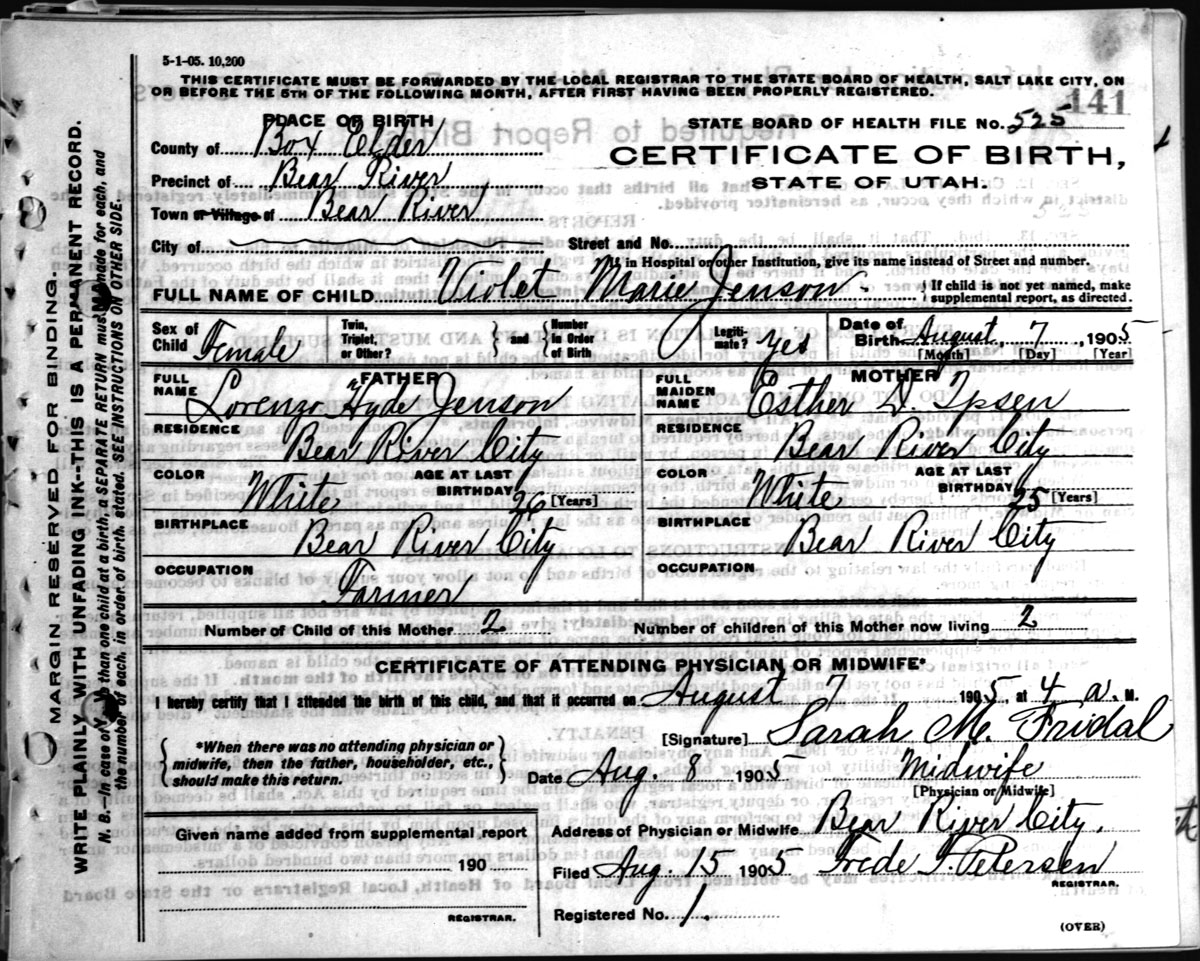 5-1-05. 10,200
THIS CERTIFICATE MUST BE FORWARDED BY THE LOCAL REGISTRAR TO THE STATE BOARD OF HEALTH, SALT LAKE CITY, ON
OR BEFORE THE 5TH OF THE FOLLOWING MONTH, AFTER FIRST HAVING BEEN PROPERLY REGISTERED.
141
PLACE OF BIRTH
STATE BOARD OF HEALTH FILE No. 525
County of Box Elder
CERTIFICATE OF BIRTH,
STATE OF UTAH.
Precinct of Bear River
Town or Village of Bear River
City of
Street and No.
If in Hospital or other Institution, give its name instead of Street and number.
FULL NAME OF CHILD Violet Marie Jenson -
If child is not yet named, make
supplemental report, as directed.
Sex of
Child Female
Twin,
Triplet,
or Other?
and
Number
in Order
of Birth
Legiti-
mate? Yes
Date of
Birth August 7, 1905
[Month] [Day] [Year]
FATHER
FULL
NAME Lorenzo Hyde Jenson
RESIDENCE
Bear River City
COLOR White
AGE AT LAST
BIRTHDAY 26 [Years]
BIRTHPLACE
Bear River City
OCCUPATION
Farmer
MOTHER
FULL
MAIDEN
NAME Esther D. Ipsen
RESIDENCE
Bear River City
COLOR White
AGE AT LAST
BIRTHDAY 25 [Years]
BIRTHPLACE
Bear River City
OCCUPATION
Number of Child of this Mother 2
Number of children of this Mother now living 2
CERTIFICATE OF ATTENDING PHYSICIAN OR MIDWIFE*
I hereby certify that I attended the birth of this child, and that it occurred on August 7 1905 at 4 a. M.
*When there was no attending physician or
midwife, then the father, householder, etc.,
should make this return.
[Signature] Sarah M. Fridal
Date Aug. 8 1905 Midwife
[Physician or Midwife]
Given name added from supplemental report
190
REGISTRAR.
Address of Physician or Midwife Bear River City.
Filed Aug. 15 1905 Frede F. Petersen
REGISTRAR.
Registered No. 1.
(OVER)
MARGIN RESERVED FOR BINDING.
WRITE PLAINLY WITH UNFADING INK--THIS IS A PERMANENT RECORD.
N. B.--In case of more than one child at a birth, a SEPARATE RETURN must be made for each, and
the number of each, in order of birth, stated. SEE INSTRUCTIONS ON OTHER SIDE.